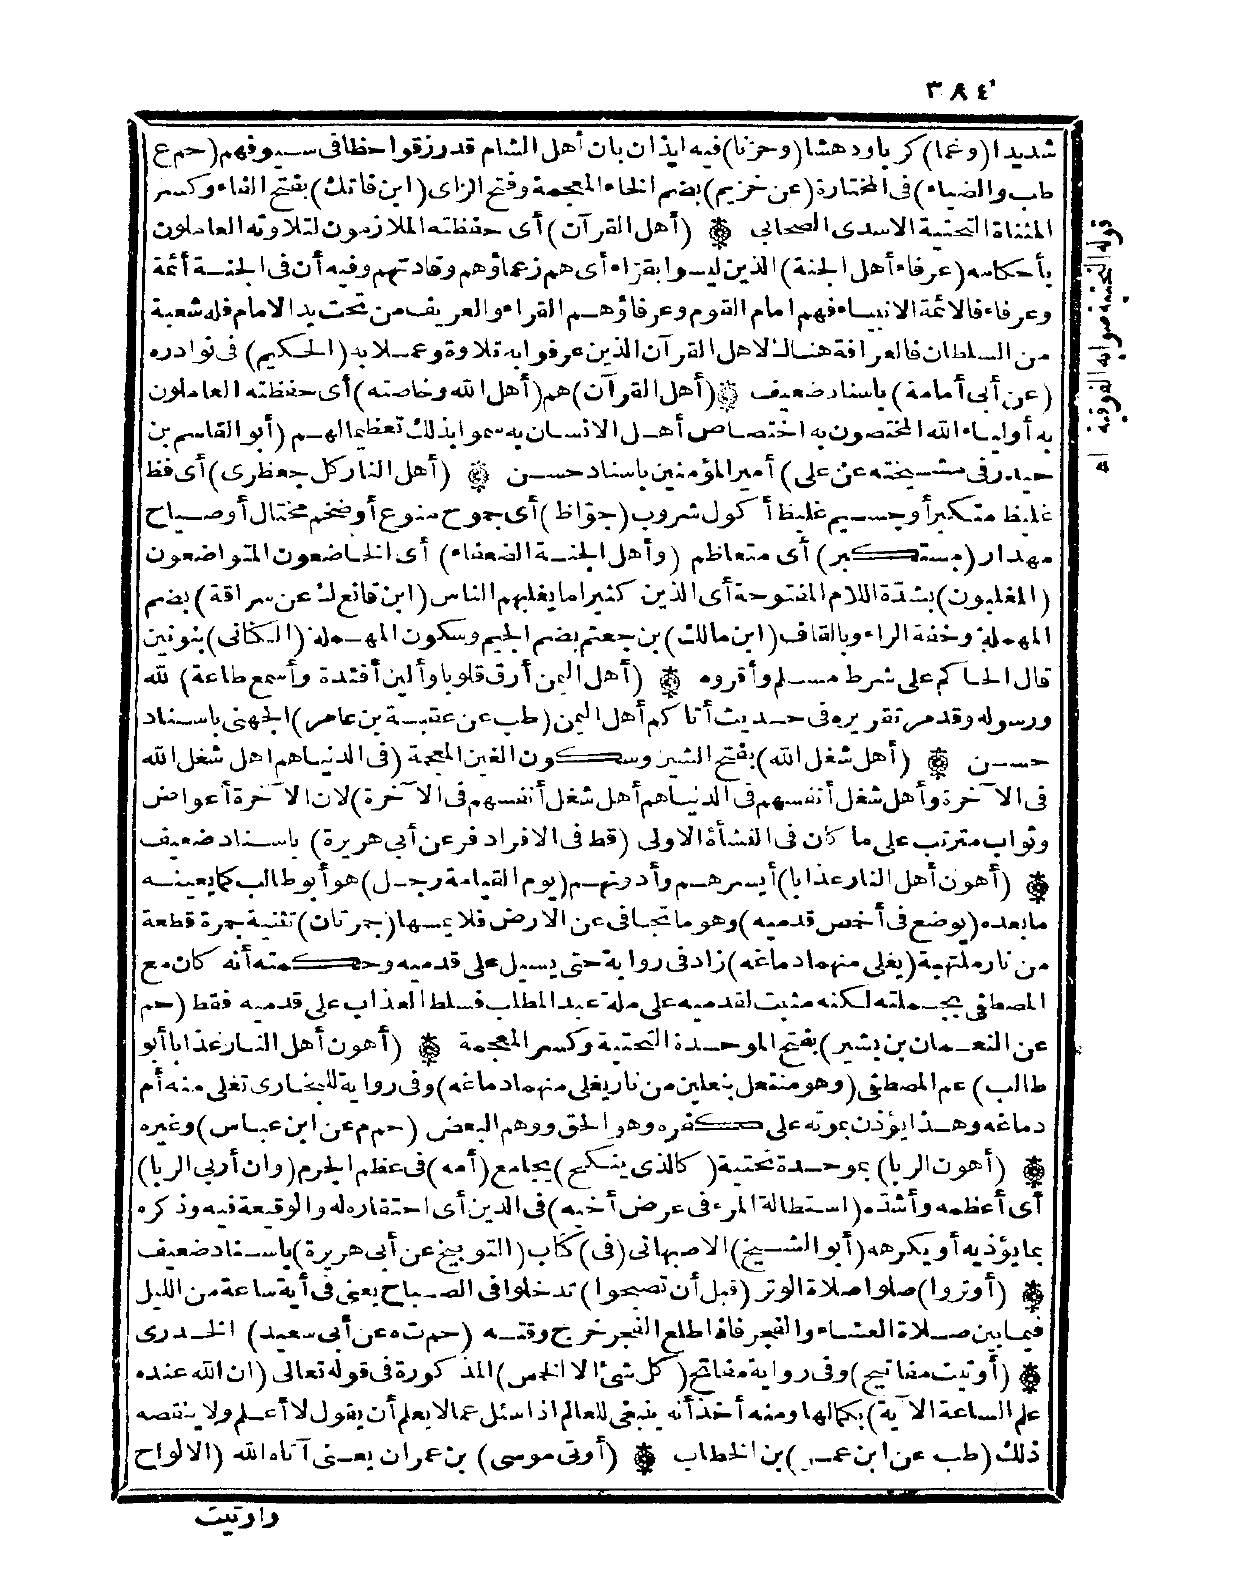 ٣٨٤
شديدا (وغما) كرباودهشا (وحزنا) فيه ايذان بان أهل الشام قدرزقوا حظا فى سيوفهم (حم ع
طب والضياء) فى المختارة (عن خزيم) بضم الخاء المعجمة وفتح الزاى (ابن فاتك) بفتح الفاء وكسر
المثناة التحتية الاسدى الصحابى ۞ (أهل القرآن) أى حفظته الملازمون لتلاوته العاملون
بأحكامه (عرفاء أهل الجنة) الذين ليسوا بقراء أى هم زعماؤهم وقادتهم وفيه أن فى الجنة أئمة
وعرفاء فالائمة الانبياء فهم امام القوم وعرفاؤهم القراء والعريف من تحت يد الامام فله شعبة
من السلطان فالعرافة هنالك لاهل القرآن الذين عرفوا به تلاوة وعملا به (الحكيم) فى نوادره
(عن أبى أمامة) باسناد ضعيف ۞ (أهل القرآن) هم (أهل الله وخاصته) أى حفظته العاملون
به أولياء الله المختصون به اختصاص أهل الانسان به سموا بذلك تعظيما لهم (أبو القاسم بن
حيدر فى مشيخته عن على) أمير المؤمنين باسناد حسن ۞ (أهل النار كل جعظرى) أى فظ
غليظ متكبر أو جسيم غليظ أكول شروب (جواظ) أى جموح منوع أو ضخم مختال أو صياح
مهدار (مستكبر) أى متعاظم (وأهل الجنة الضعفاء) أى الخاضعون المتواضعون
(المغلبون) بشدة اللام المفتوحة أى الذين كثيرا ما يغلبهم الناس (ابن قانع ك عن سراقة) بضم
المهملة وخفة الراء وبالقاف (ابن مالك) بن جعثم بضم الجيم وسكون المهملة (الكنانى) بنونين
قال الحاكم على شرط مسلم وأقروه ۞ (أهل اليمن أرق قلوبا وألين أفئدة وأسمع طاعة) لله
ورسوله وقدمر تقريره فى حديث أتاكم أهل اليمن (طب عن عقبة بن عامر) الجهنى باسناد
حسن ۞ (أهل شغل الله) بفتح الشين وسكون الغين المعجمة (فى الدنيا هم أهل شغل الله
فى الآخرة وأهل شغل أنفسهم فى الدنيا هم أهل شغل أنفسهم فى الآخرة) لان الآخرة أعواض
وثواب مترتب على ما كان فى النشأة الاولى (قط فى الافراد فر عن أبى هريرة) باسناد ضعيف
۞ (أهون أهل النار عذابا) أيسرهم وأدونهم (يوم القيامة رجل) هو أبو طالب كما يعينه
ما بعده (يوضع فى أخمص قدميه) وهو ما تجافى عن الارض فلا يمسها (جمرتان) تثنية جمرة قطعة
من نار ملتهبة (يغلى منهما دماغه) زاد فى رواية حتى يسيل على قدميه وحكمته أنه كان مع
المصطفى بجملته لكنه مثبت لقدميه على ملة عبد المطلب فسلط العذاب على قدميه فقط (حم
عن النعمان بن بشير) بفتح الموحدة التحتية وكسر المعجمة ۞ (أهون أهل النار عذابا أبو
طالب) عم المصطفى (وهو منتعل بنعلين من نار يغلى منهما دماغه) وفى رواية للبخارى تغلى منه أم
دماغه وهذا يؤذن بموته على كفره وهو الحق ووهم البعض (حم م عن ابن عباس) وغيره
۞ (أهون الربا) بموحدة تحتية (كالذى ينكح) يجامع (أمه) فى عظم الجرم (وان أربى الربا)
أى أعظمه وأشده (استطالة المرء فى عرض أخيه) فى الدين أى احتقاره له والوقيعة فيه وذكره
بما يؤذيه أو يكرهه (أبو الشيخ) الاصبهانى (فى) كتاب (التوبيخ عن أبى هريرة) باسناد ضعيف
۞ (أوتروا) صلوا صلاة الوتر (قبل أن تصبحوا) تدخلوا فى الصباح يعنى فى أية ساعة من الليل
فيما بين صلاة العشاء والفجر فاذا طلع الفجر خرج وقته (حم ت ه عن أبى سعيد) الخدرى
۞ (أوتيت مفاتيح) وفى رواية مفاتح (كل شئ الا الخمس) المذكورة فى قوله تعالى (ان الله عنده
علم الساعة الآية) بكمالها ومنه أخذ أنه ينبغى للعالم اذا سئل عما لا يعلم أن يقول لا أعلم ولا ينقصه
ذلك (طب عن ابن عمر) بن الخطاب ۞ (أوتى موسى) بن عمران يعنى آتاه الله (الالواح
واوتيت
قوله التحتية صوابه الفوقية اه